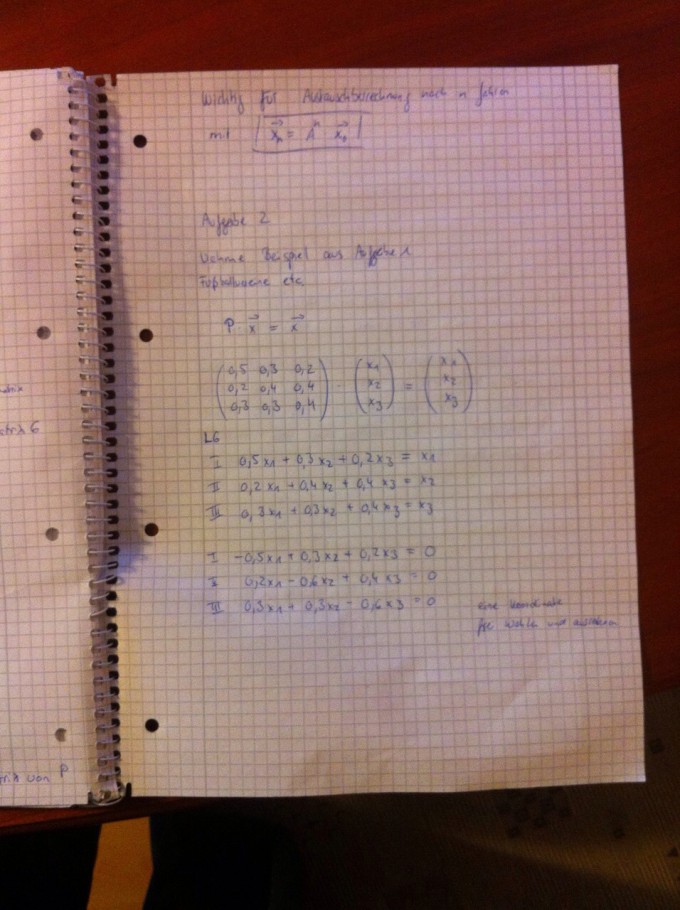 Wichtig für Austauschberechnung nach n Jahren
mit x⃗ₙ = Aⁿ · x⃗₀
Aufgabe 2
Nehme Beispiel aus Aufgabe 1
Fußballvereine etc.
P · x⃗ = x⃗
(0,5 0,3 0,2) (x₁) (x₁)
(0,2 0,4 0,4) · (x₂) = (x₂)
(0,3 0,3 0,4) (x₃) (x₃)
LG
I 0,5x₁ + 0,3x₂ + 0,2x₃ = x₁
II 0,2x₁ + 0,4x₂ + 0,4x₃ = x₂
III 0,3x₁ + 0,3x₂ + 0,4x₃ = x₃
I -0,5x₁ + 0,3x₂ + 0,2x₃ = 0
II 0,2x₁ - 0,6x₂ + 0,4x₃ = 0
III 0,3x₁ + 0,3x₂ - 0,6x₃ = 0
eine Koordinate
frei wählen und
von P